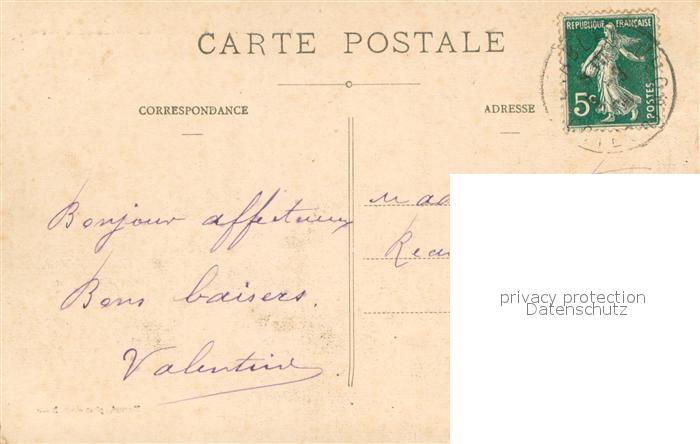 CARTE POSTALE
REPUBLIQUE FRANÇAISE
5c
POSTES
CORRESPONDANCE
ADRESSE
Bonjour affectueux
Bons baisers.
Valentine
privacy protection
Datenschutz